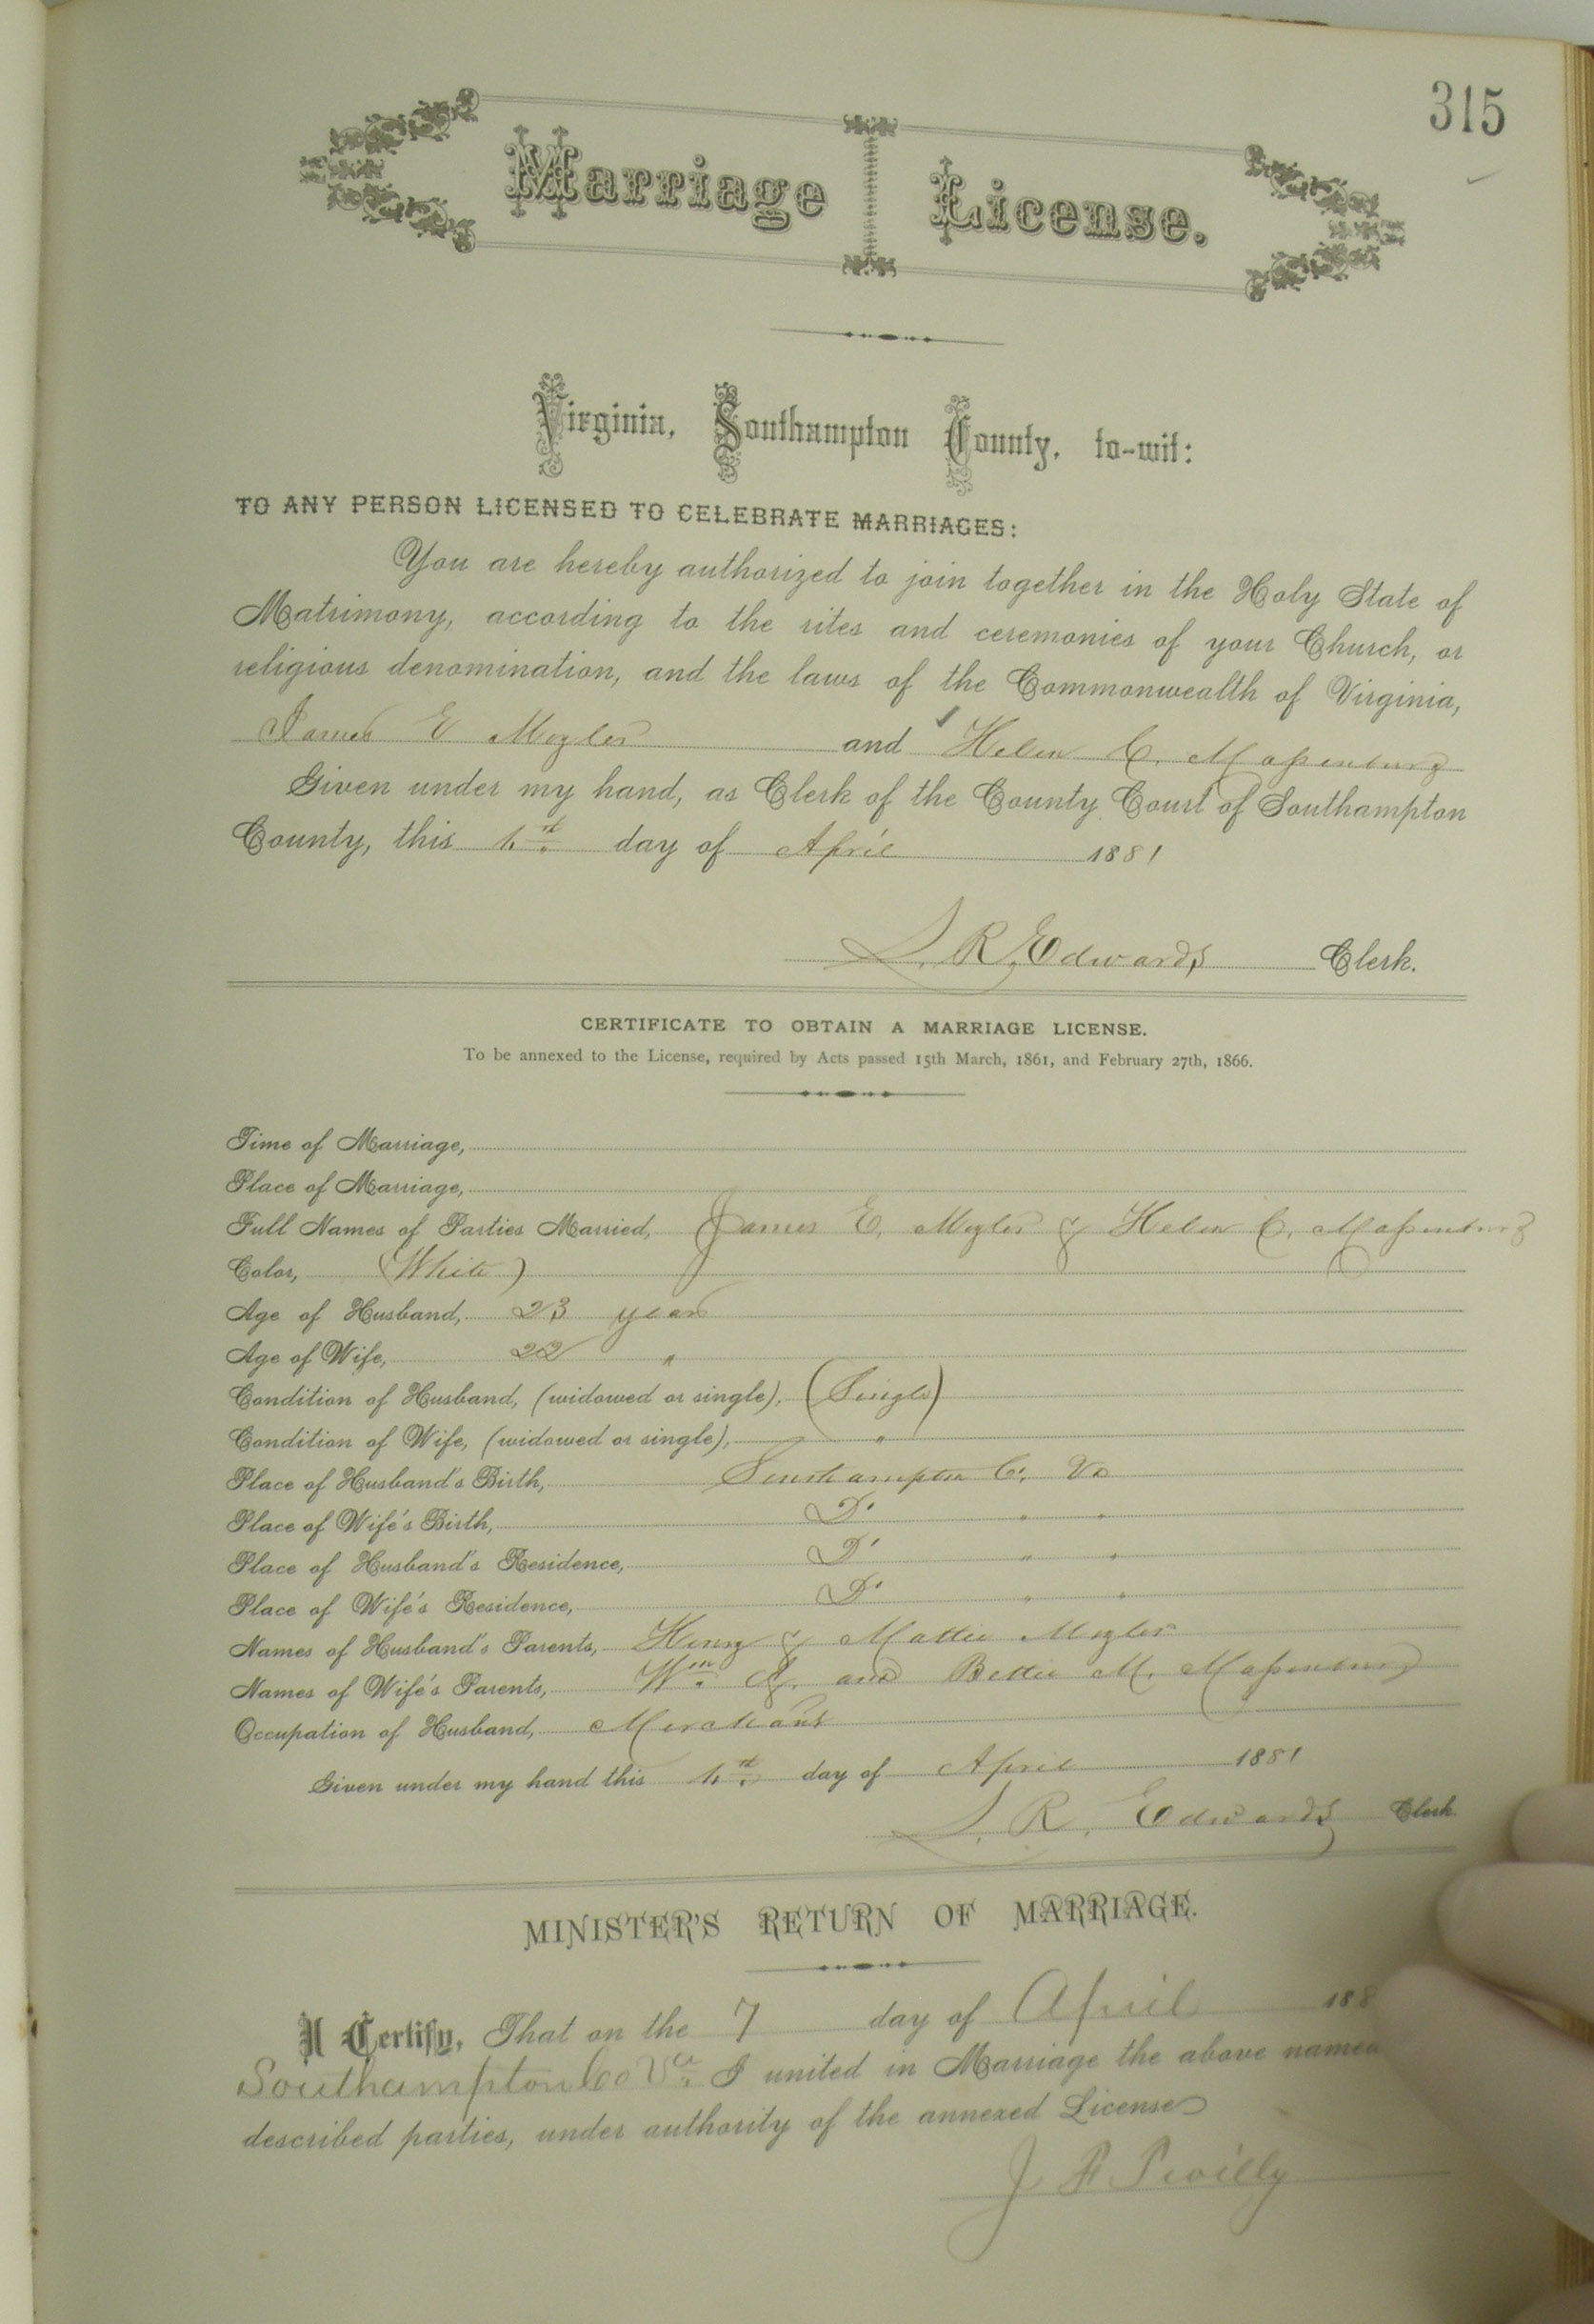 315
Marriage License.
Virginia, Southampton County, to-wit:
TO ANY PERSON LICENSED TO CELEBRATE MARRIAGES:
You are hereby authorized to join together in the Holy State of
Matrimony, according to the rites and ceremonies of your Church, or
religious denomination, and the laws of the Commonwealth of Virginia,
James E and Helen C. Massenburg
Given under my hand, as Clerk of the County Court of Southampton
County, this day of April 1881
L. R. Edwards Clerk.
CERTIFICATE TO OBTAIN A MARRIAGE LICENSE.
To be annexed to the License, required by Acts passed 15th March, 1861, and February 27th, 1866.
Time of Marriage,
Place of Marriage,
Full Names of Parties Married, James E. & Helen C. Massenburg
Color, (White)
Age of Husband, 23 years
Age of Wife, 22 "
Condition of Husband, (widowed or single), (Single)
Condition of Wife, (widowed or single), "
Place of Husband's Birth, Southampton Co. Va
Place of Wife's Birth, Do " "
Place of Husband's Residence, Do " "
Place of Wife's Residence, Do " "
Names of Husband's Parents, Henry & Mattie
Names of Wife's Parents, Wm. and Bettie M. Massenburg
Occupation of Husband, Merchant
Given under my hand this day of April 1881
L. R. Edwards Clerk
MINISTER'S RETURN OF MARRIAGE.
I Certify, That on the 7 day of April 188
Southampton Co Va. I united in Marriage the above named
described parties, under authority of the annexed License
J